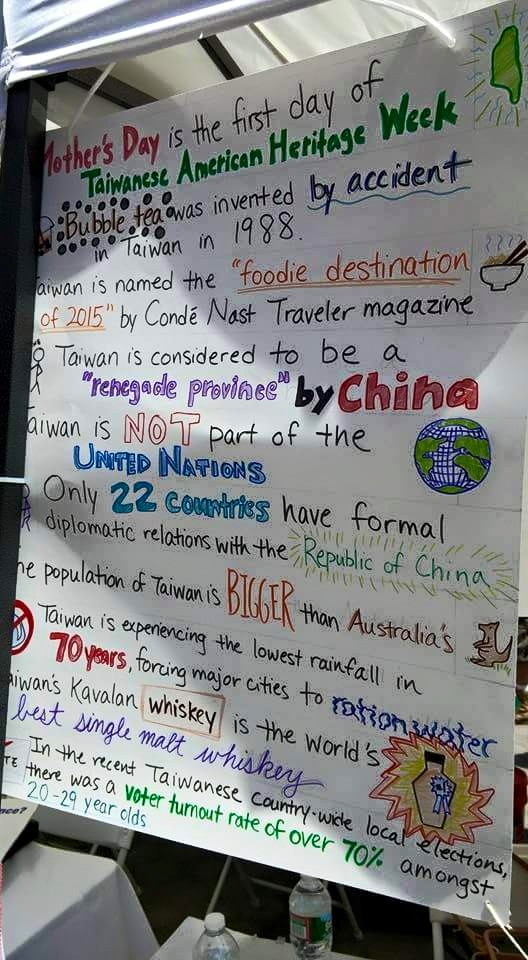 Mother's Day is the first day of
Taiwanese American Heritage Week
Bubble tea was invented by accident
in Taiwan in 1988.
aiwan is named the "foodie destination
of 2015" by Condé Nast Traveler magazine
Taiwan is considered to be a
"renegade province" by China
aiwan is NOT part of the
UNITED NATIONS
Only 22 countries have formal
diplomatic relations with the Republic of China
he population of Taiwan is BIGGER than Australia's
Taiwan is experiencing the lowest rainfall in
70 years, forcing major cities to ration water
aiwan's Kavalan whiskey is the world's
best single malt whiskey
TE In the recent Taiwanese country-wide local elections,
there was a voter turnout rate of over 70% amongst
20-29 year olds